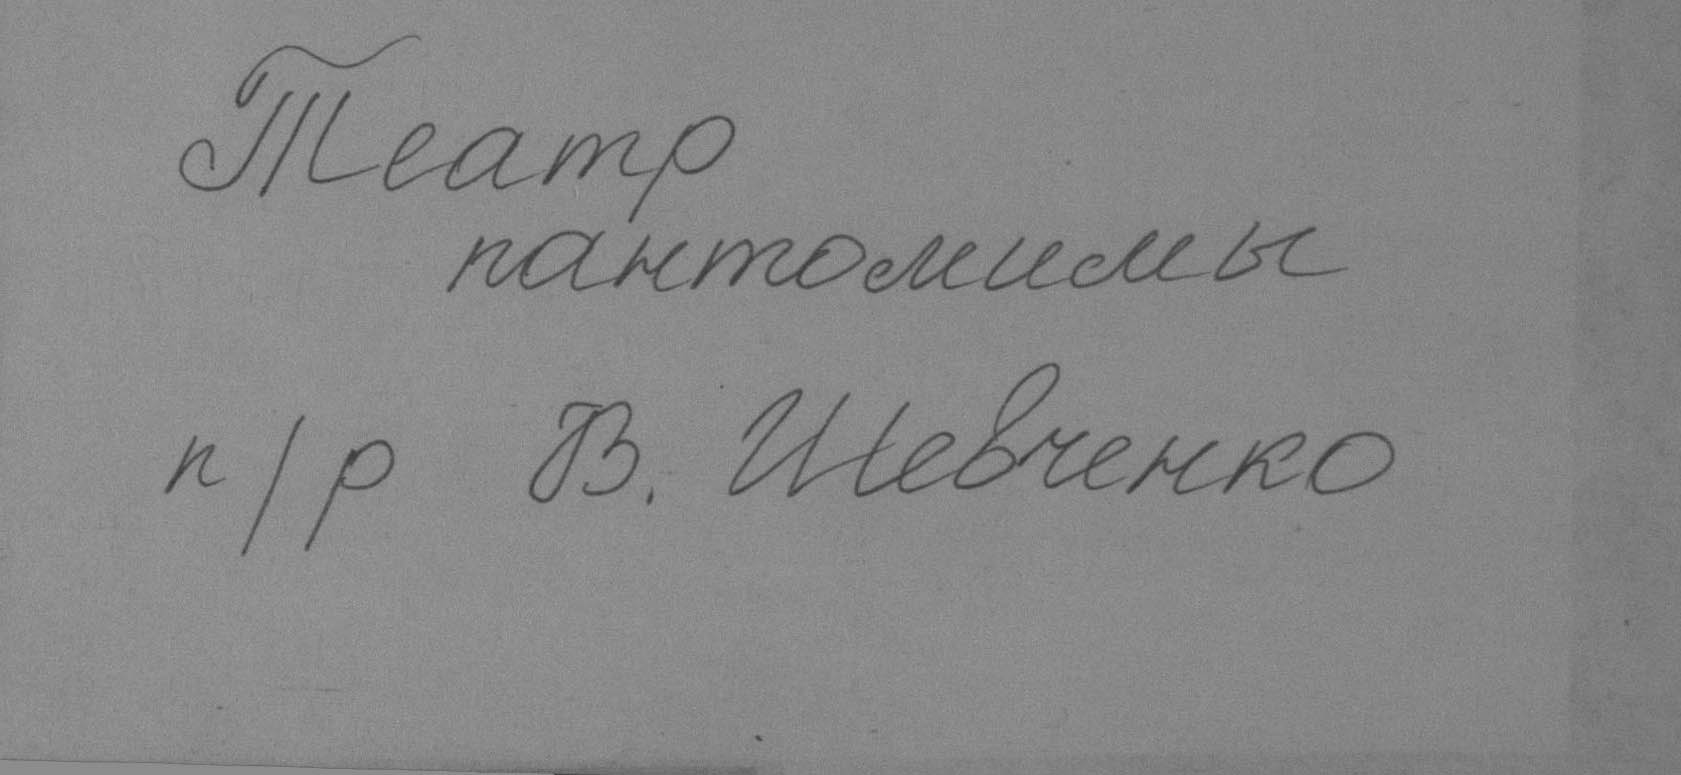 Театр
пантомимы
п/р В. Шевченко